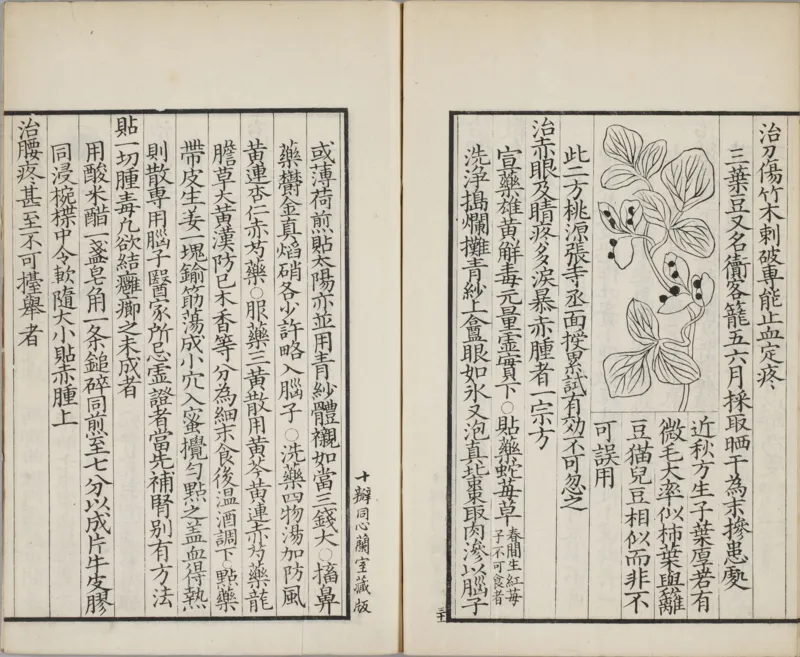 治刀傷竹木刺破專能止血定疼
三葉豆又名衢客籠五六月採取晒干為末摻患處
近秋方生子葉厚若有
微毛大率似柿葉與雞
豆猫兒豆相似而非不
可誤用
此二方桃源張寺丞面授累試有効不可忽之
治赤眼及睛疼多淚暴赤腫者一宗方
宣藥雄黃解毒元量虛實下○貼藥蛇苺草春間生紅苺子不可食者
洗淨搗爛攤青紗上盦眼如氷又泡真北棗取肉滲以腦子
或薄荷煎貼太陽亦並用青紗體襯如當三錢大○搐鼻
藥欝金真焰硝各少許略入腦子○洗藥四物湯加防風
黃連杏仁赤芍藥○服藥三黃散用黃芩黃連赤芍藥龍
膽草大黃漢防己木香等分為細末食後温酒調下○點藥
帶皮生姜一塊鍮筋蕩成小穴入蜜攪勻點之盖血得熱
則散專用腦子醫家所忌虛證者當先補腎別有方法
貼一切腫毒凡欲結癰癤之未成者
用酸米醋一盞皂角一条鎚碎同煎至七分以成片牛皮膠
同浸椀楪中令軟隨大小貼赤腫上
治腰疼甚至不可擡舉者
十瓣同心蘭室藏版